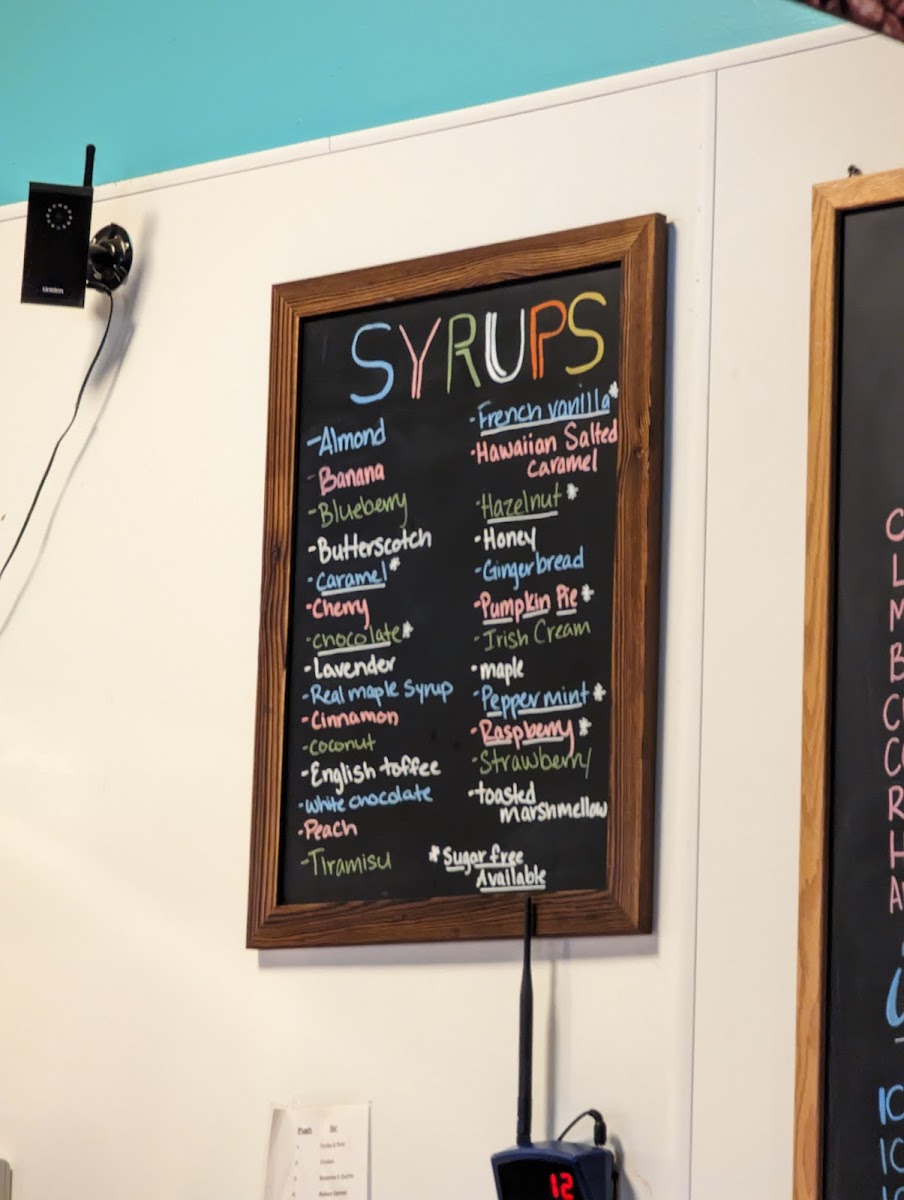 SYRUPS
-Almond
-Banana
-Blueberry
-Butterscotch
-Caramel*
-Cherry
-chocolate*
-Lavender
-Real maple syrup
-Cinnamon
-coconut
-English toffee
-white chocolate
-Peach
-Tiramisu
-French vanilla*
-Hawaiian Salted
caramel
-Hazelnut*
-Honey
-Gingerbread
-Pumpkin Pie*
-Irish Cream
-maple
-Peppermint*
-Raspberry*
-Strawberry
-toasted
marshmellow
*Sugar free
Available
Uniden
12
C
L
M
B
R
H